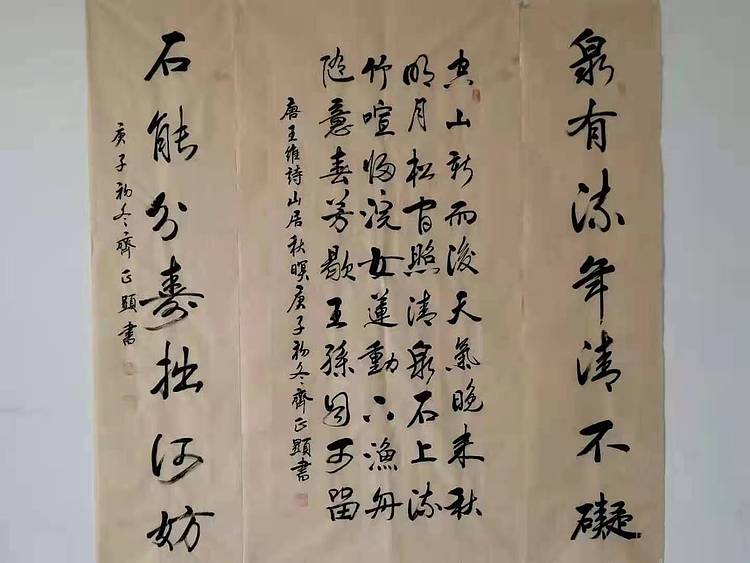 泉有流年清不礙
空山新雨後天氣晚来秋
明月松间照清泉石上流
竹喧归浣女蓮動下漁舟
随意春芳歇王孫自可留
唐王維詩山居秋暝庚子初冬齊正顯書
石能分壽拙何妨
庚子初冬齊正顯書